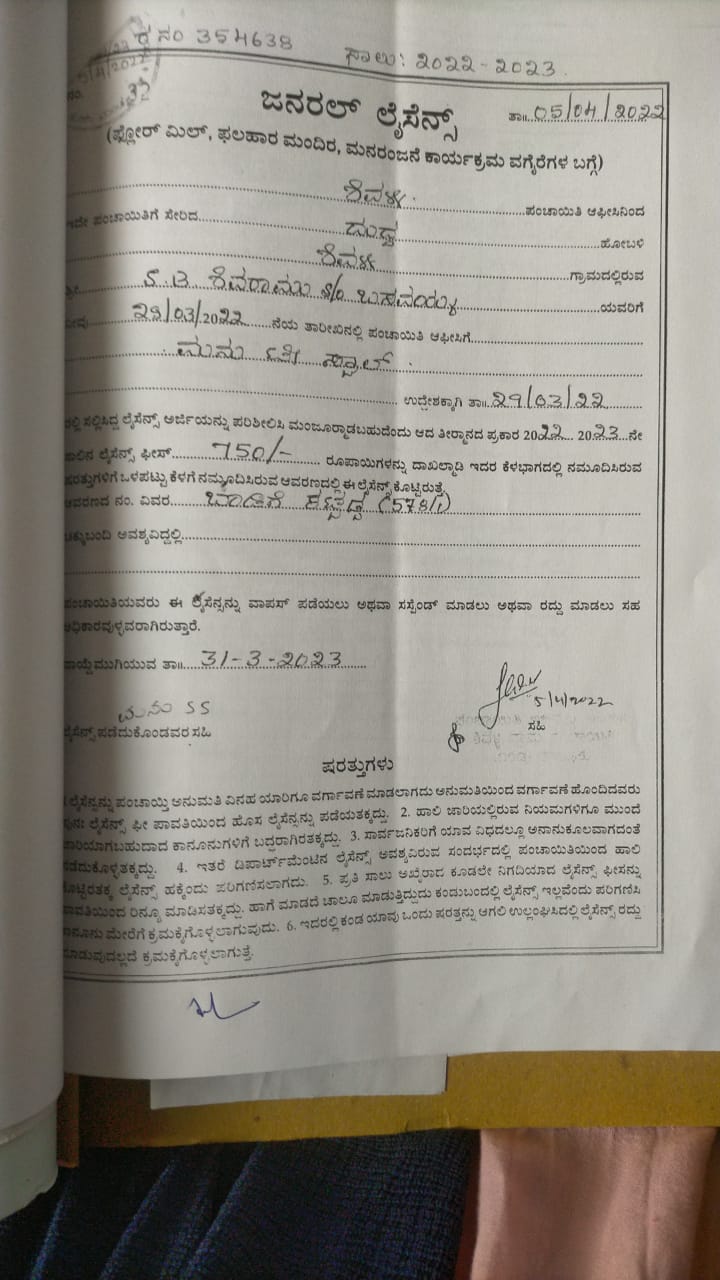 ಕ್ರ ನಂ 354638
ಸಾಲು: 2022-2023
5/4/2022
ನಂ. 32
ಜನರಲ್ ಲೈಸೆನ್ಸ್
ತಾ॥ 05/04/2022
(ಫ್ಲೋರ್ ಮಿಲ್, ಫಲಹಾರ ಮಂದಿರ, ಮನರಂಜನೆ ಕಾರ್ಯಕ್ರಮ ವಗೈರೆಗಳ ಬಗ್ಗೆ)
ಶಿವಳ್ಳಿ ಪಂಚಾಯಿತಿ ಆಫೀಸಿನಿಂದ
ಇದೇ ಪಂಚಾಯಿತಿಗೆ ಸೇರಿದ ದುದ್ದ ಹೋಬಳಿ
ಶಿವಳ್ಳಿ ಗ್ರಾಮದಲ್ಲಿರುವ
ಶ್ರೀ S.B ಶಿವರಾಮು S/o ಬಸವಯ್ಯ ಯವರಿಗೆ
ನೀವು 29/03/2022 ನೆಯ ತಾರೀಖಿನಲ್ಲಿ ಪಂಚಾಯಿತಿ ಆಫೀಸಿಗೆ
ಮನು ಟೀ ಸ್ಟಾಲ್
ಉದ್ದೇಶಕ್ಕಾಗಿ ತಾ॥ 29/03/22
ರಲ್ಲಿ ಸಲ್ಲಿಸಿದ್ದ ಲೈಸೆನ್ಸ್ ಅರ್ಜಿಯನ್ನು ಪರಿಶೀಲಿಸಿ ಮಂಜೂರ್‍ಮಾಡಬಹುದೆಂದು ಆದ ತೀರ್‍ಮಾನದ ಪ್ರಕಾರ 2022 2023 ನೇ
ಸಾಲಿನ ಲೈಸೆನ್ಸ್ ಫೀಸ್ 750/- ರೂಪಾಯಿಗಳನ್ನು ದಾಖಲ್ಮಾಡಿ ಇದರ ಕೆಳಭಾಗದಲ್ಲಿ ನಮೂದಿಸಿರುವ
ಷರತ್ತುಗಳಿಗೆ ಒಳಪಟ್ಟು ಕೆಳಗೆ ನಮ್ಮೂದಿಸಿರುವ ಆವರಣದಲ್ಲಿ ಈ ಲೈಸೆನ್ಸ್ ಕೊಟ್ಟಿರುತ್ತೆ.
ಆವರಣದ ನಂ. ವಿವರ ಬಾಡಿಗೆ ಕಟ್ಟಡ (578/1)
ಚಕ್ಕುಬಂದಿ ಅವಶ್ಯವಿದ್ದಲ್ಲಿ
ಪಂಚಾಯಿತಿಯವರು ಈ ಲೈಸೆನ್ಸನ್ನು ವಾಪಸ್ ಪಡೆಯಲು ಅಥವಾ ಸಸ್ಪೆಂಡ್ ಮಾಡಲು ಅಥವಾ ರದ್ದು ಮಾಡಲು ಸಹ
ಅಧಿಕಾರವುಳ್ಳವರಾಗಿರುತ್ತಾರೆ.
ವಾಯ್ದೆಮುಗಿಯುವ ತಾ॥ 31-3-2023
5/4/2022
ಮನು SS
ಸಹಿ
ಲೈಸೆನ್ಸ್ ಪಡೆದುಕೊಂಡವರ ಸಹಿ
ಷರತ್ತುಗಳು
ಲೈಸೆನ್ಸನ್ನು ಪಂಚಾಯ್ತಿ ಅನುಮತಿ ವಿನಹ ಯಾರಿಗೂ ವರ್ಗಾವಣೆ ಮಾಡಲಾಗದು ಅನುಮತಿಯಿಂದ ವರ್ಗಾವಣೆ ಹೊಂದಿದವರು
ಪುನಃ ಲೈಸೆನ್ಸ್ ಫೀ ಪಾವತಿಯಿಂದ ಹೊಸ ಲೈಸೆನ್ಸನ್ನು ಪಡೆಯತಕ್ಕದ್ದು. 2. ಹಾಲಿ ಜಾರಿಯಲ್ಲಿರುವ ನಿಯಮಗಳಿಗೂ ಮುಂದೆ
ಜಾರಿಯಾಗಬಹುದಾದ ಕಾನೂನುಗಳಿಗೆ ಬದ್ಧರಾಗಿರತಕ್ಕದ್ದು. 3. ಸಾರ್ವಜನಿಕರಿಗೆ ಯಾವ ವಿಧದಲ್ಲೂ ಅನಾನುಕೂಲವಾಗದಂತೆ
ನಡೆದುಕೊಳ್ಳತಕ್ಕದ್ದು. 4. ಇತರೆ ಡಿಪಾರ್ಟ್‌ಮೆಂಟಿನ ಲೈಸೆನ್ಸ್ ಅವಶ್ಯವಿರುವ ಸಂದರ್ಭದಲ್ಲಿ ಪಂಚಾಯಿತಿಯಿಂದ ಹಾಲಿ
ಕೊಟ್ಟಿರತಕ್ಕ ಲೈಸೆನ್ಸ್ ಹಕ್ಕೆಂದು ಪರಿಗಣಿಸಲಾಗದು. 5. ಪ್ರತಿ ಸಾಲು ಅಖೈರಾದ ಕೂಡಲೇ ನಿಗದಿಯಾದ ಲೈಸೆನ್ಸ್ ಫೀಸನ್ನು
ಪಾವತಿಯಿಂದ ರಿನ್ಯೂ ಮಾಡಿಸತಕ್ಕದ್ದು. ಹಾಗೆ ಮಾಡದೆ ಚಾಲೂ ಮಾಡುತ್ತಿದ್ದುದು ಕಂಡುಬಂದಲ್ಲಿ ಲೈಸೆನ್ಸ್ ಇಲ್ಲವೆಂದು ಪರಿಗಣಿಸಿ
ಕಾನೂನು ಮೇರೆಗೆ ಕ್ರಮಕೈಗೊಳ್ಳಲಾಗುವುದು. 6. ಇದರಲ್ಲಿ ಕಂಡ ಯಾವು ಒಂದು ಷರತ್ತನ್ನು ಆಗಲಿ ಉಲ್ಲಂಘಿಸಿದಲ್ಲಿ ಲೈಸೆನ್ಸ್ ರದ್ದು
ಮಾಡುವುದಲ್ಲದೆ ಕ್ರಮಕೈಗೊಳ್ಳಲಾಗುತ್ತೆ.